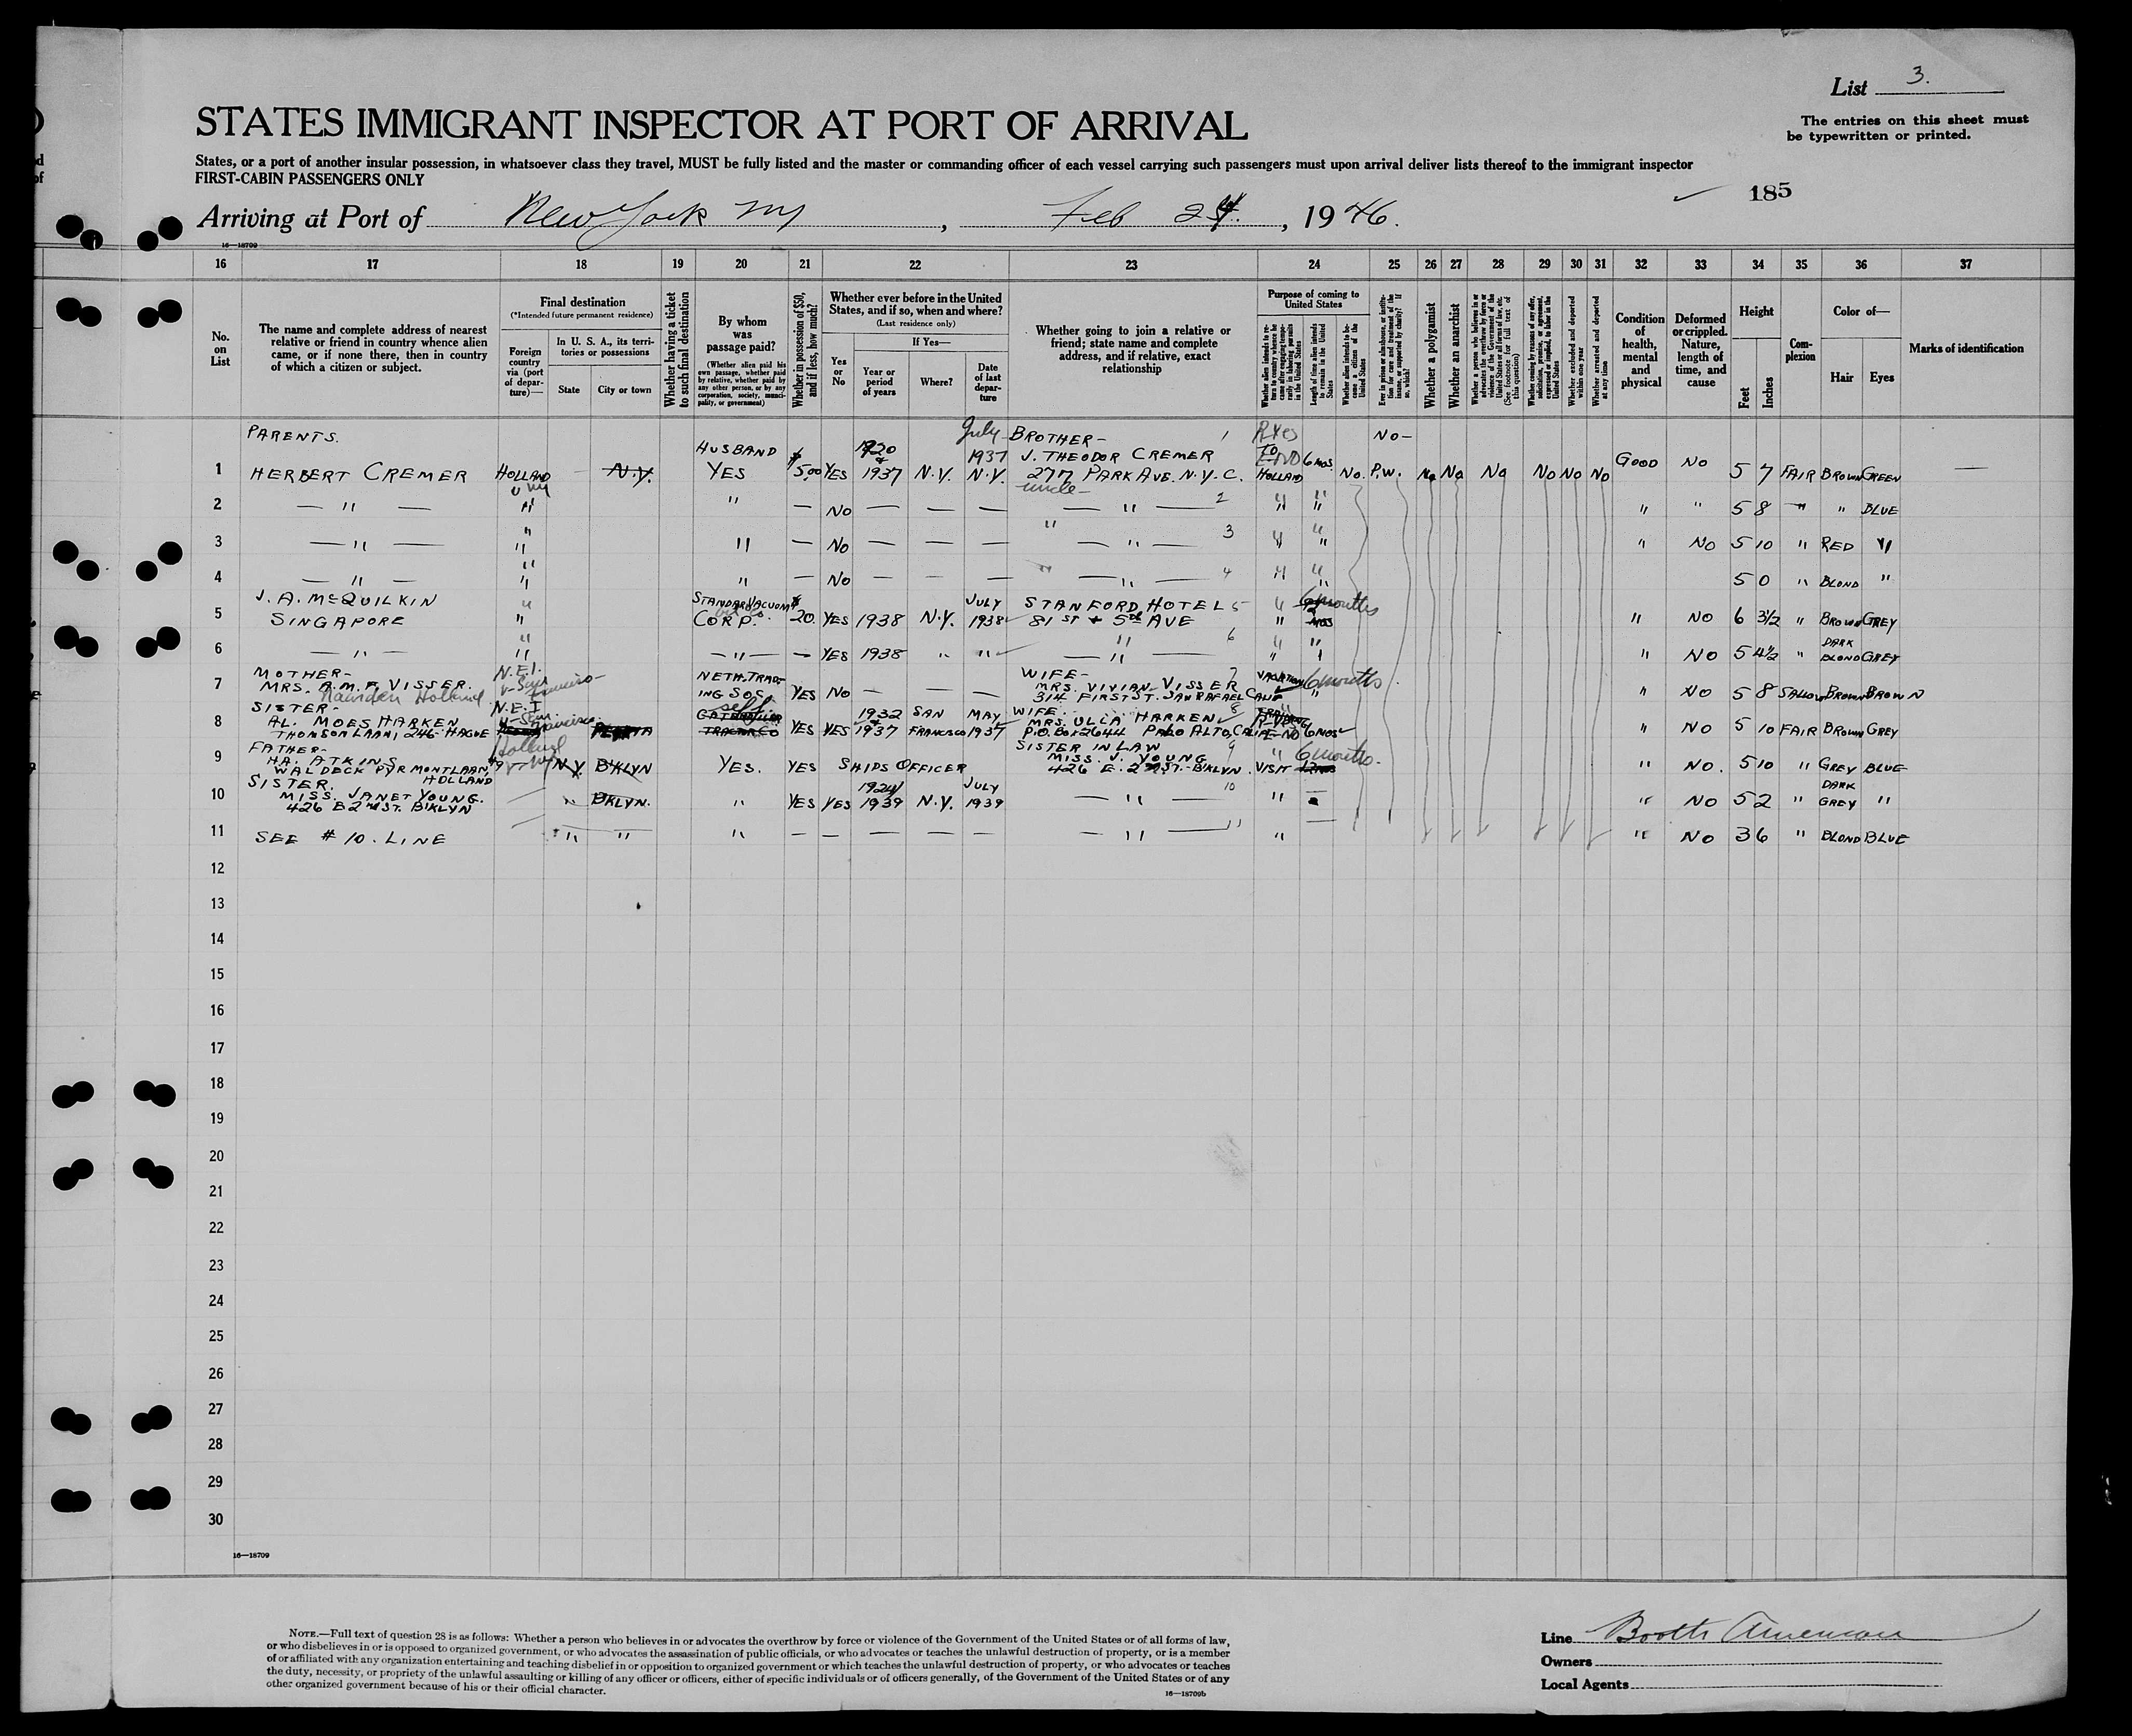 List 3.
STATES IMMIGRANT INSPECTOR AT PORT OF ARRIVAL
The entries on this sheet must
be typewritten or printed.
States, or a port of another insular possession, in whatsoever class they travel, MUST be fully listed and the master or commanding officer of each vessel carrying such passengers must upon arrival deliver lists thereof to the immigrant inspector
FIRST-CABIN PASSENGERS ONLY
185
Arriving at Port of New York NY, Feb 24, 1946.
16—18709
16 17 18 19 20 21 22 23 24 25 26 27 28 29 30 31 32 33 34 35 36 37
No. on List
The name and complete address of nearest
relative or friend in country whence alien
came, or if none there, then in country
of which a citizen or subject.
Final destination
(*Intended future permanent residence)
Foreign country via (port of depar-ture)—
In U. S. A., its terri-
tories or possessions
State
City or town
Whether having a ticket
to such final destination
By whom
was
passage paid?
(Whether alien paid his
own passage, whether paid
by relative, whether paid by
any other person, or by any
corporation, society, munici-
pality, or government)
Whether in possession of $50,
and if less, how much?
Whether ever before in the United
States, and if so, when and where?
(Last residence only)
Yes or No
If Yes—
Year or period of years
Where?
Date of last depar-ture
Whether going to join a relative or
friend; state name and complete
address, and if relative, exact
relationship
Purpose of coming to
United States
Length of time alien intends to remain in the United States
Whether alien intends to be-come a citizen of the United States
Whether a polygamist
Whether an anarchist
Whether excluded and deported within one year
Whether arrested and deported at any time
Condition of health, mental and physical
Deformed or crippled. Nature, length of time, and cause
Height
Feet
Inches
Com-plexion
Color of—
Hair
Eyes
Marks of identification
PARENTS. HUSBAND 1920 July BROTHER— 1 R Yes No—
1 HERBERT CREMER HOLLAND N.Y. YES $500 YES 1937 N.Y. 1937 N.Y. J. THEODOR CREMER 277 PARK AVE. N.Y.C. TO HOLLAND 6 MOS No. P.W. No No No No No No GOOD NO 5 7 FAIR BROWN GREEN —
uncle—
2 — " — " " — NO — — — — " — 2 " " " " 5 8 " " BLUE
3 — " — " " — NO — — — — " — 3 " " " NO 5 10 " RED "
4 — " — " " — NO — — — — " — 4 " " 5 0 " BLOND "
5 J. A. McQUILKIN SINGAPORE " STANDARD VACUUM CORP. $20. YES 1938 N.Y. JULY 1938 STANFORD HOTEL 5 81 ST & 5th AVE " 6 months " NO 6 3½ " BROWN GREY
6 — " — " — " — — YES 1938 " " — " — 6 " " " NO 5 4½ " DARK BLOND GREY
7 MOTHER— MRS. A.M.F. VISSER. Holland N.E.I. v-San Francisco— NETH. TRADING SOC. YES NO — — — WIFE— 7 MRS. VIVIAN VISSER 314 FIRST ST. SAN RAFAEL CALIF VACATION 6 months " NO 5 8 SALLOW BROWN BROWN
8 SISTER— AL. MOES HARKEN THOMSONLAAN, 246 HAGUE N.E.I. v-San Francisco self YES YES 1932 & 1937 SAN FRANCISCO MAY 1937 WIFE 8 MRS. ULLA HARKEN P.O. Box 2644 PALO ALTO, CALIF. 6 MOS " NO 5 10 FAIR BROWN GREY
9 FATHER— HA. ATKINS WALDECK PYRMONTLAAN, #9 HOLLAND Holland v-NY N.Y. B'KLYN YES. YES SHIPS OFFICER SISTER IN LAW 9 MISS. J. YOUNG 426 E. 2 ND ST. B'KLYN. " VISIT 6 months. " NO. 5 10 " GREY BLUE
10 SISTER. MISS. JANET YOUNG. 426 E 2 nd ST. B'KLYN — " B'KLYN. " YES YES 1924 1939 N.Y. JULY 1939 — " — 10 " " NO 5 2 " DARK GREY "
11 SEE # 10. LINE — " " " — — — — — — " — 11 " — " NO 3 6 " BLOND BLUE
12
13
14
15
16
17
18
19
20
21
22
23
24
25
26
27
28
29
30
16—18709
NOTE.—Full text of question 28 is as follows: Whether a person who believes in or advocates the overthrow by force or violence of the Government of the United States or of all forms of law,
or who disbelieves in or is opposed to organized government, or who advocates the assassination of public officials, or who advocates or teaches the unlawful destruction of property, or is a member
of or affiliated with any organization entertaining and teaching disbelief in or opposition to organized government or which teaches the unlawful destruction of property, or who advocates or teaches
the duty, necessity, or propriety of the unlawful assaulting or killing of any officer or officers, either of specific individuals or of officers generally, of the Government of the United States or of any
other organized government because of his or their official character.
16—18709b
Line Booth American
Owners
Local Agents